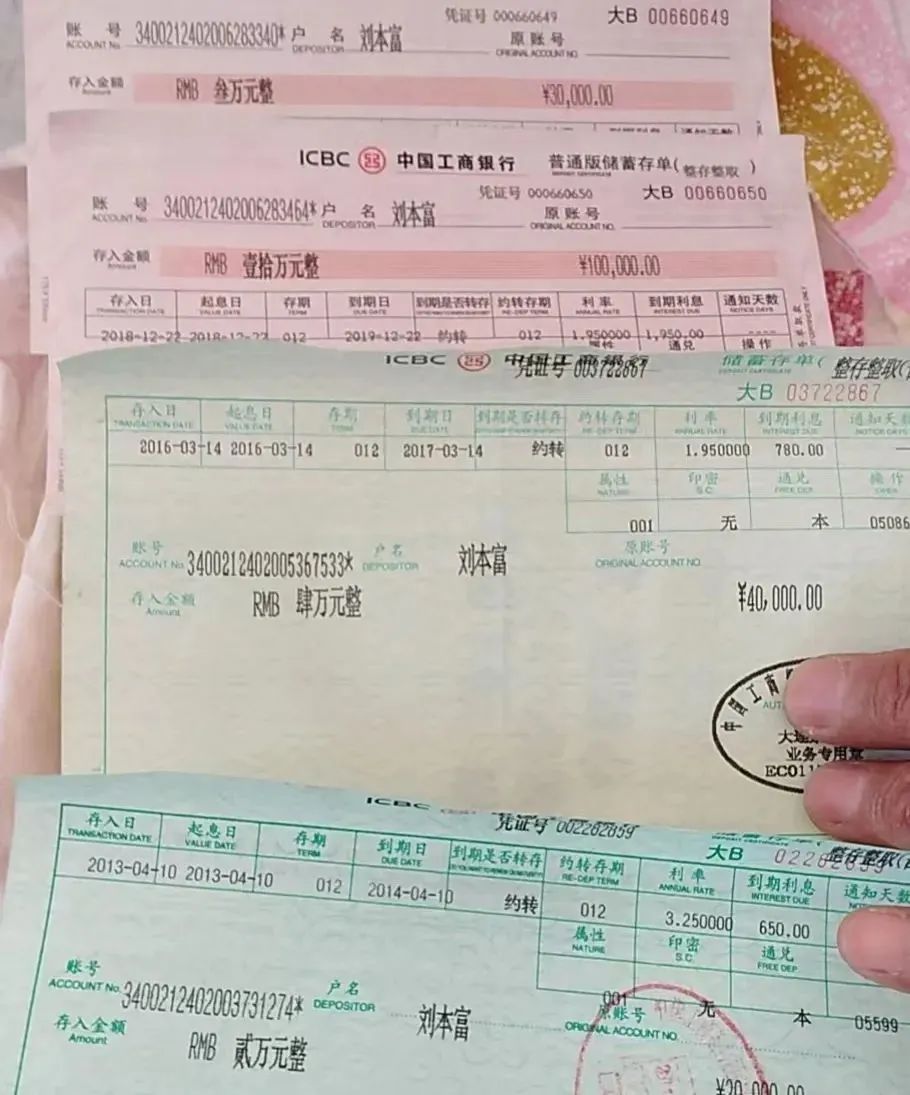 凭证号 000660649 大B 00660649
账 号 3400212402006283340* 户 名 刘本富 原账号
ACCOUNT No. DEPOSITOR ORIGINAL ACCOUNT NO.
存入金额 RMB 叁万元整 ¥30,000.00
Amount
ICBC 中国工商银行 普通版储蓄存单(整存整取 )
凭证号 000660650 大B 00660650
账 号 3400212402006283464* 户 名 刘本富 原账号
ACCOUNT No. DEPOSITOR ORIGINAL ACCOUNT NO.
存入金额 RMB 壹拾万元整 ¥100,000.00
Amount
存入日 起息日 存期 到期日 到期是否转存 约转存期 利率 到期利息 通知天数
TRANSACTION DATE VALUE DATE TERM DUE DATE RE-DEP TERM ANNUAL RATE INTEREST DUE NOTICE DAYS
2018-12-22 2018-12-22 012 2019-12-22 约转 012 1.950000 1,950.00 ----
属性 通兑 操作
ICBC 中国工商银行 储蓄存单( 整存整取(
凭证号 003722867
大B 03722867
存入日 起息日 存期 到期日 到期是否转存 约转存期 利率 到期利息 通知天数
TRANSACTION DATE VALUE DATE TERM DUE DATE RE-DEP TERM ANNUAL RATE INTEREST DUE NOTICE DAYS
2016-03-14 2016-03-14 012 2017-03-14 约转 012 1.950000 780.00
属性 印密 通兑 操作
NATURE S.C. FREE DEP OPER
001 无 本 05086
账号 3400212402005367533* 户名 刘本富 原账号
ACCOUNT No. DEPOSITOR ORIGINAL ACCOUNT NO.
存入金额 RMB 肆万元整 ¥40,000.00
Amount
中国工商
业务专用章
EC01
ICBC
凭证号 002262859
大B 整存整取(
存入日 起息日 存期 到期日 到期是否转存 约转存期 利率 到期利息 通知天数
TRANSACTION DATE VALUE DATE TERM DUE DATE RE-DEP TERM ANNUAL RATE INTEREST DUE
2013-04-10 2013-04-10 012 2014-04-10 约转 012 3.250000 650.00
属性 印密 通兑
NATURE S.C. FREE DEP
001 无 本 05599
账号 3400212402003731274* 户名 刘本富 原账号
ACCOUNT No. DEPOSITOR ORIGINAL ACCOUNT NO.
存入金额 RMB 贰万元整 ¥20,000.00
Amount